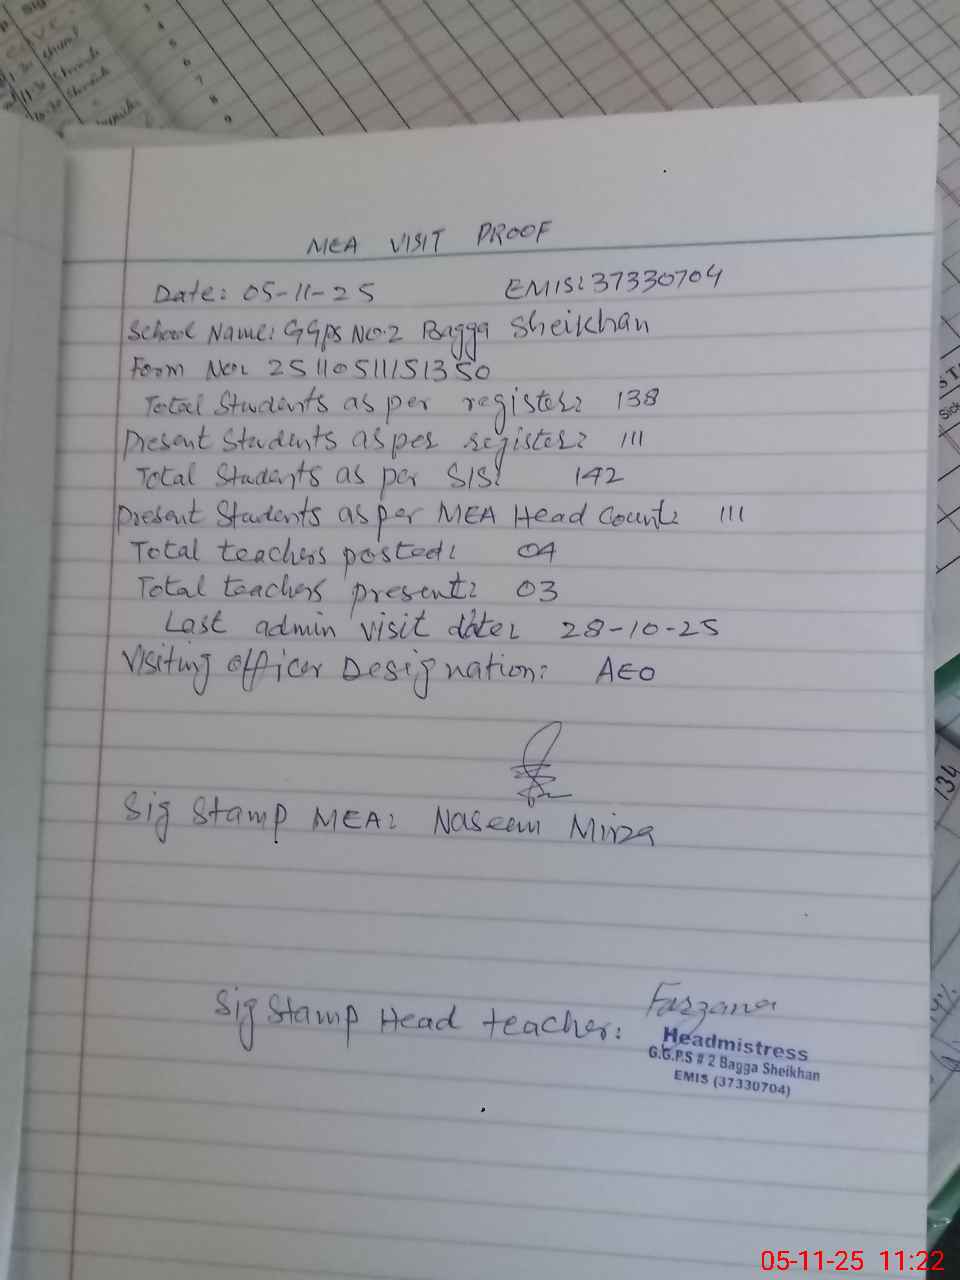 MEA VISIT PROOF
Date: 05-11-25 EMIS: 37330704
School Name: GGPS No.2 Bagga Sheikhan
Form No: 25110511151350
Total Students as per register: 138
Present Students as per register: 111
Total Students as per SIS: 142
Present Students as per MEA Head Count: 111
Total teachers posted: 04
Total teachers present: 03
Last admin visit date: 28-10-25
Visiting officer Designation: AEO
Sig Stamp MEA: Naseem Mirza
Sig Stamp Head teacher: Farzana
Headmistress
G.G.P.S # 2 Bagga Sheikhan
EMIS (37330704)
134
05-11-25 11:22